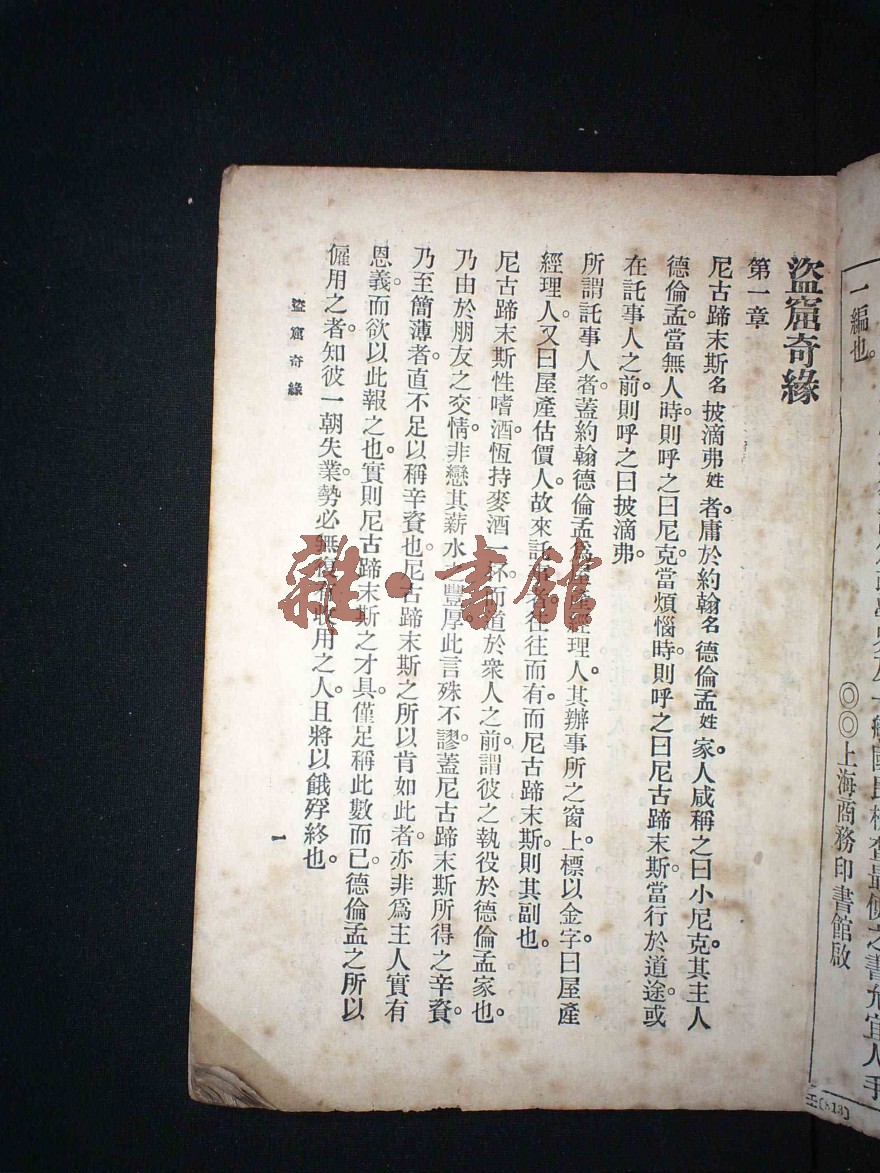 一編也。
◎◎上海商務印書館啟
盜窟奇緣
第一章
尼古蹄末斯名披滴弗姓者。庸於約翰名德倫孟姓家。人咸稱之曰小尼克。其主人
德倫孟。當無人時。則呼之曰尼克。當煩惱時。則呼之曰尼古蹄末斯。當行於道途。或
在託事人之前。則呼之曰披滴弗。
所謂託事人者。蓋約翰德倫孟為屋產經理人。其辦事所之窗上。標以金字。曰屋產
經理人。又曰屋產估價人。故來託事者。往往而有。而尼古蹄末斯。則其副也。
尼古蹄末斯性嗜酒。恆持麥酒一杯。而道於衆人之前。謂彼之執役於德倫孟家也。
乃由於朋友之交情。非戀其薪水之豐厚。此言殊不謬。蓋尼古蹄末斯所得之辛資。
乃至簡薄者。直不足以稱辛資也。尼古蹄末斯之所以肯如此者。亦非為主人實有
恩義。而欲以此報之也。實則尼古蹄末斯之才具。僅足稱此數而已。德倫孟之所以
僱用之者。知彼一朝失業。勢必無復有收用之人。且將以餓殍終也。
盜窟奇緣
一
雜·書館